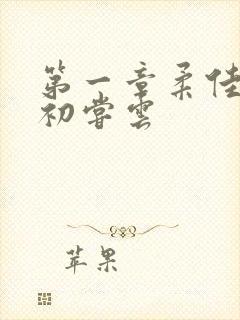 第一章柔佳
初尝雲
苹果